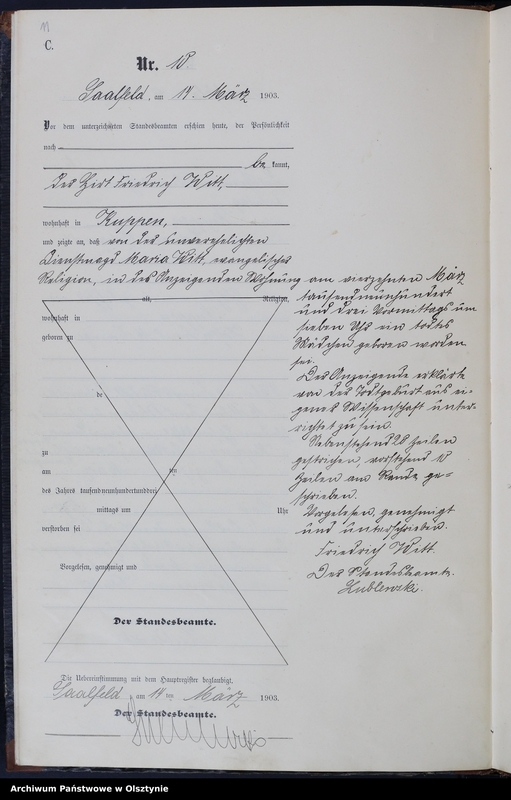 11
C.
Nr. 18.
Saalfeld, am 14. März 1903.
Vor dem unterzeichneten Standesbeamten erschien heute, der Persönlichkeit
nach
be kannt,
der Hirt Friedrich Witt,
wohnhaft in Kuppen,
und zeigte an, daß von der unverehelichten
Dienstmagd Maria Witt, evangelischer
Religion, in des Anzeigenden Wohnung am vierzehnten März
tausendneunhundert
und drei Vormittags um
sieben Uhr ein todtes
Mädchen geboren worden
sei.
Der Anzeigende erklärte
von der Todtgeburt aus ei-
genes Wissenschaft unter-
richtet zu sein.
Nebenstehend 28 Zeilen
gestrichen, vorstehend 10
Zeilen am Rande ge-
schrieben.
Vorgelesen, genehmigt
und unterschrieben.
Friedrich Witt.
Der Standesbeamte.
alt, Religion,
wohnhaft in
geboren zu
de
zu
am ten
des Jahres tausendneunhundertunddrei
mittags um Uhr
verstorben sei
Vorgelesen, genehmigt und
Der Standesbeamte.
Die Uebereinstimmung mit dem Hauptregister beglaubigt.
Saalfeld am 14 ten März 1903.
Der Standesbeamte.
Archiwum Państwowe w Olsztynie